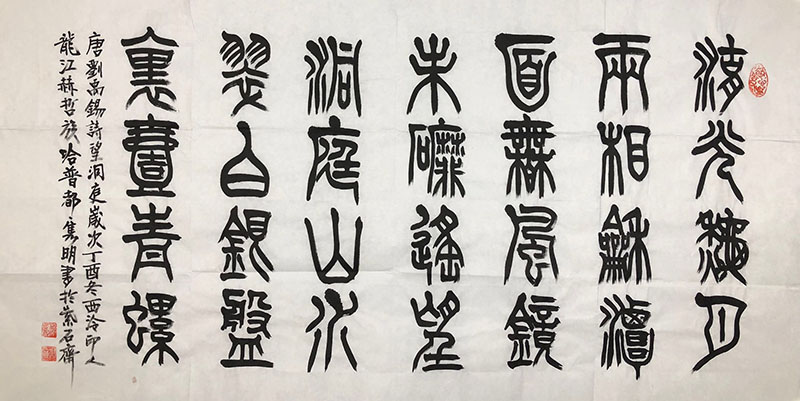 湖光秋月
兩相龢潭
面無風鏡
未䃺遙望
洞庭山水
翠白銀盤
裏壹青螺
唐劉禹錫詩望洞庭歲次丁酉冬西泠印人
龍江赫哲族哈普都隽明書於紫石齋